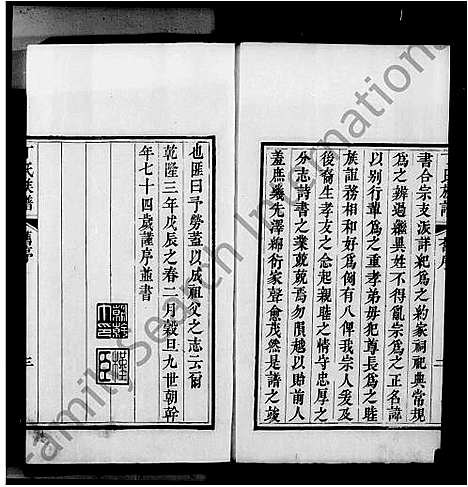 書合宗支派詳紀為之約家祠祀典常規
為之辨過繼異姓不得亂宗為之正名諱
以別行輩為之重孝弟毋犯尊長為之睦
族誼務相和好為倘有八俾我宗人發及
後裔生孝友之念起親睦之情守忠厚之
分志詩書之業兢兢焉勿隕越以貽前人
羞庶幾先澤綿衍家聲愈茂然是譜之竣
二
也匪曰予勞蓋以成祖父之志云爾
乾隆三年戊辰之春二月穀旦九世朝幹
年七十四歲謹序並書
丁氏族譜
舊序
三
FamilySearch International